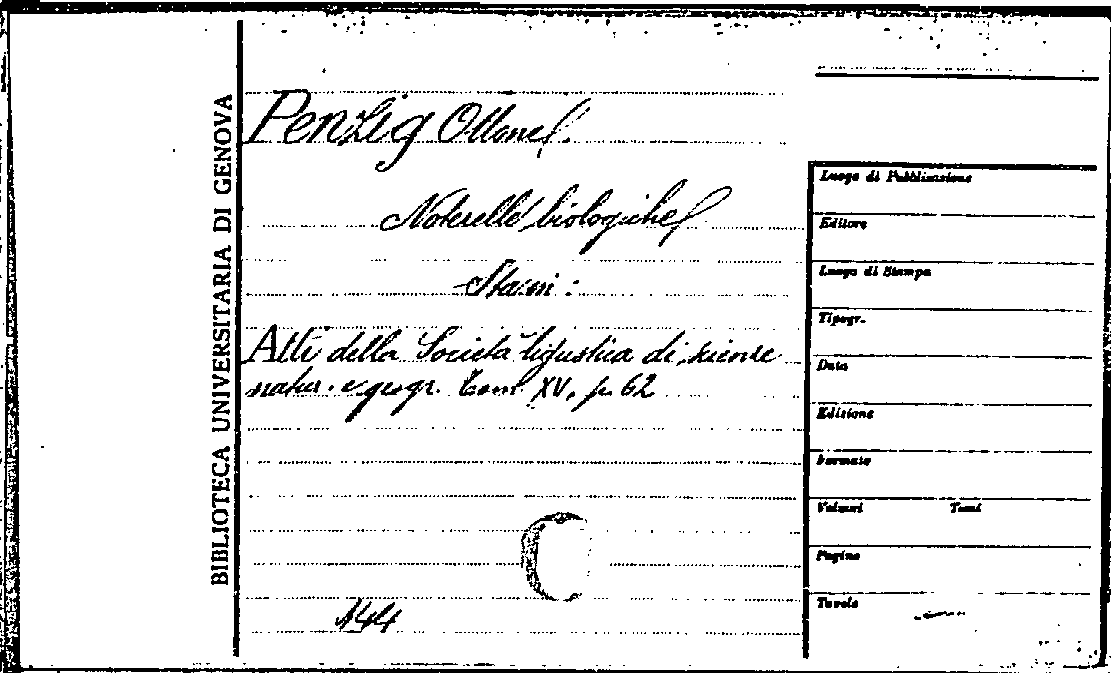 BIBLIOTECA UNIVERSITARIA DI GENOVA
Penzig Ottone
Noterelle biologiche
Sta in:
Atti della Società ligustica di scienze
natur. e geogr. Tom. XV, p. 62
144
Luogo di Pubblicazione
Editore
Luogo di Stampa
Tipogr.
Data
Edizione
Formato
Volumi Tomi
Pagine
Tavole